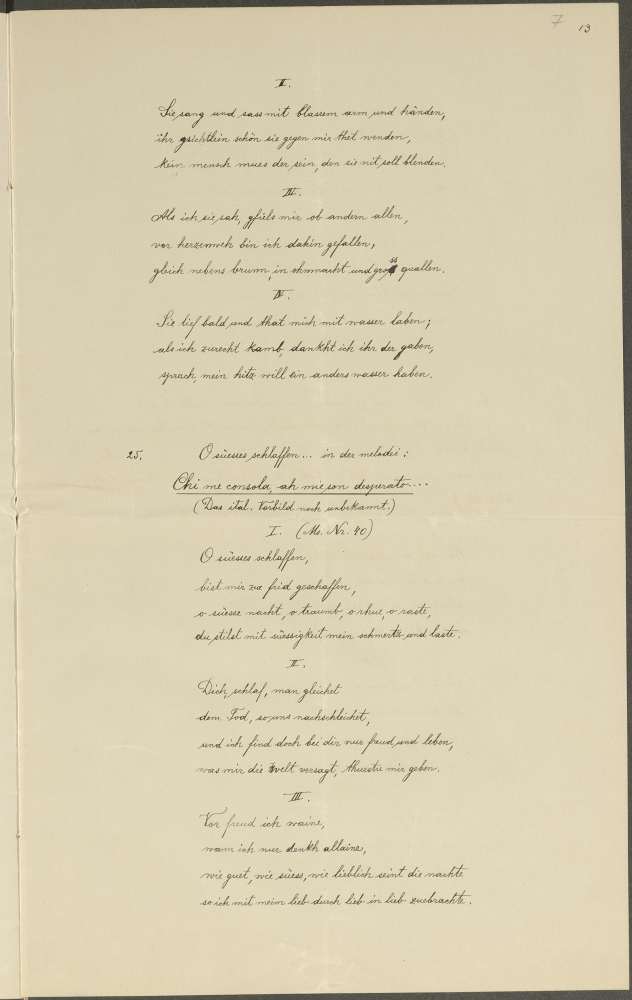 7 13
II.
Sie sang und sass mit blassem arm und händen,
ihr gsichtlein schön sie gegen mir thet wenden,
kein mensch mues der sein, den sie nit soll blenden.
III.
Als ich sie sah, gfiels mir ob andern allen,
vor herzenweh bin ich dahin gefallen,
gleich nebens brunn, in ohnmacht und gross quallen.
IV.
Sie lief bald und that mich mit wasser laben;
als ich zurecht kamb, dankht ich ihr der gaben,
sprach, mein hitz will ein anders wasser haben.
25. O süesses schlaffen... in der melodei:
Chi me consola, ah mie son desperato....
(Das ital. Vorbild noch unbekannt.)
I. (Ms. Nr. 40)
O süesses schlaffen,
bist mir zue frid geschaffen,
o süesse nacht, o traumb, o rhue, o raste,
du stilst mit süessigkeit mein schmertz und laste.
II.
Dich, schlaf, man gleichet
dem Tod, so uns nachschleichet,
und ich find doch bei dir nur freud und leben,
was mir die welt versagt, thuestu mir geben.
III.
Vor freud ich waine,
wann ich nur denkh allaine,
wie guet, wie süess, wie lieblich seint die nachte
so ich mit meim lieb durch lieb in lieb zuebrachte.